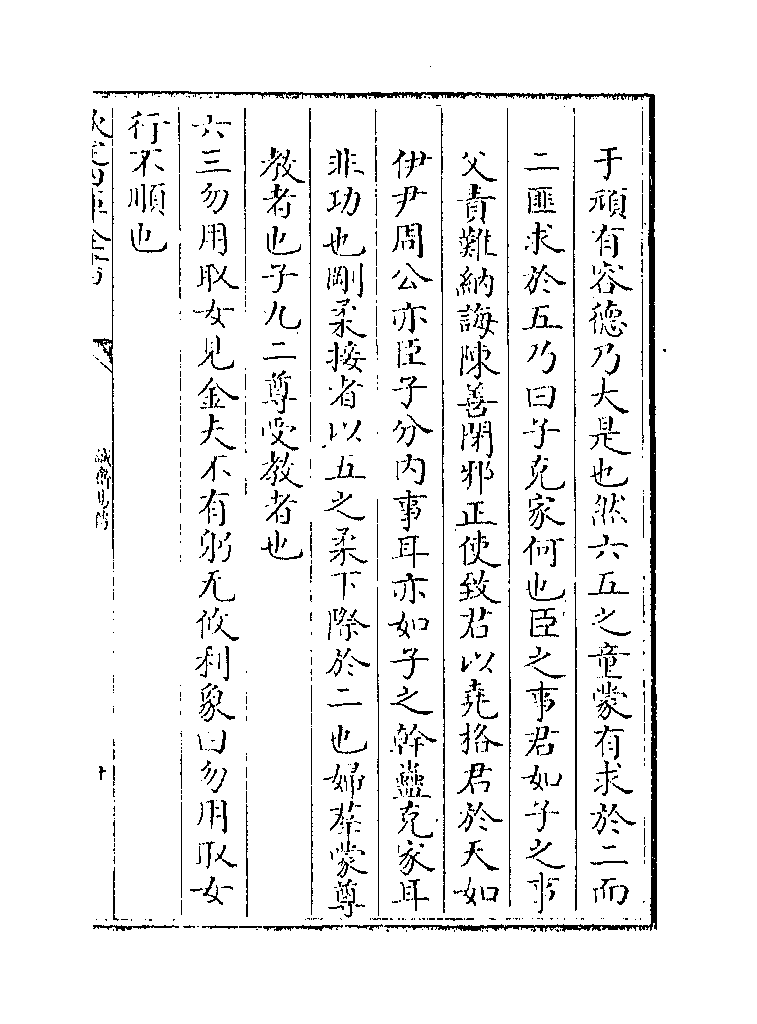 于頑有容德乃大是也然六五之童蒙有求於二而
二匪求於五乃曰子克家何也臣之事君如子之事
父責難納誨陳善閉邪正使致君以堯格君於天如
伊尹周公亦臣子分内事耳亦如子之幹蠱克家耳
非功也剛柔接者以五之柔下際於二也婦柔蒙尊
教者也子九二尊受教者也
六三勿用取女見金夫不有躬无攸利象曰勿用取女
行不順也
欽定四庫全書
誠齋易傳
十